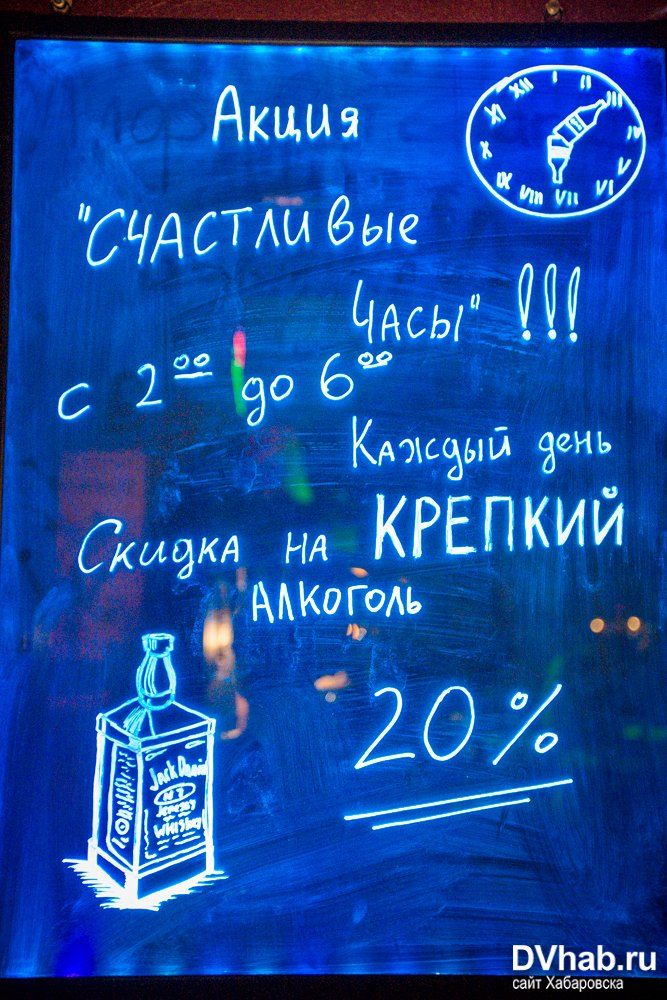 Акция
"СЧАСТЛИВые
ЧАСЫ" !!!
с 2⁰⁰ до 6⁰⁰
Каждый день
Скидка на КРЕПКИЙ
АЛКОГОЛЬ
20%
XII I II III V VI VII VIII IX X XI
Jack Daniel
N 7
WHISKEY
DVhab.ru
сайт Хабаровска